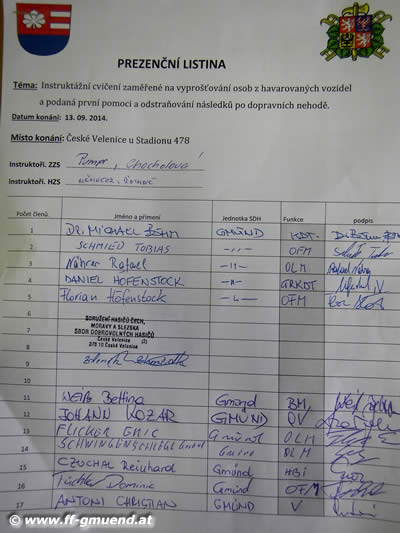 PREZENČNÍ LISTINA
Téma: Instruktážní cvičení zaměřené na vyprošťování osob z havarovaných vozidel
a podaná první pomoci a odstraňování následků po dopravních nehodě.
Datum konání: 13. 09. 2014.
Místo konání: České Velenice u Stadionu 478
Instruktoři. ZZS Pumpr, Chocholová
Instruktoři. HZS
Počet členů Jméno a přímení Jednotka SDH Funkce podpis
1 Dr. MICHAEL BÖHM GMÜND KDT.
2 SCHMIED TOBIAS -"- OFM
3 Rafael -"- OLM
4 DANIEL HOFENSTOCK -"-
5 Florian Hofenstock -"- OFM
6
7 SDRUŽENÍ HASIČŮ ČECH,
MORAVY A SLEZSKA
SBOR DOBROVOLNÝCH HASIČŮ
České Velenice (2)
378 10 České Velenice
8
9
11 WEIß Bettina Gmünd BM
12 JOHANN KOZAR GMÜND OV
13 FLICKER ERIC Gmünd OLM
14 Gmünd OLM
15 CZUCHAL Reinhard Gmünd HBI
16 Dominic Gmünd OFM
17 ANTONI CHRISTIAN GMÜND V
© www.ff-gmuend.at